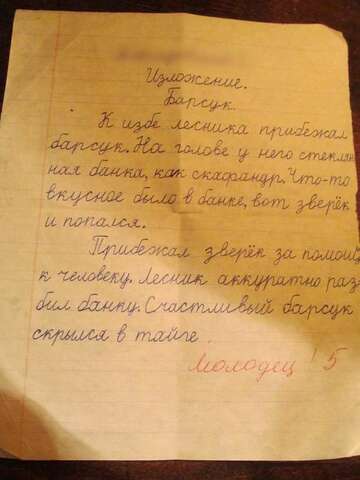 Изложение.
Барсук.
К избе лесника прибежал
барсук. На голове у него стеклян
ная банка, как скафандр. Что-то
вкусное было в банке, вот зверёк
и попался.
Прибежал зверёк за помощ
к человеку. Лесник аккуратно раз
бил банку. Счастливый барсук
скрылся в тайге.
Молодец! 5